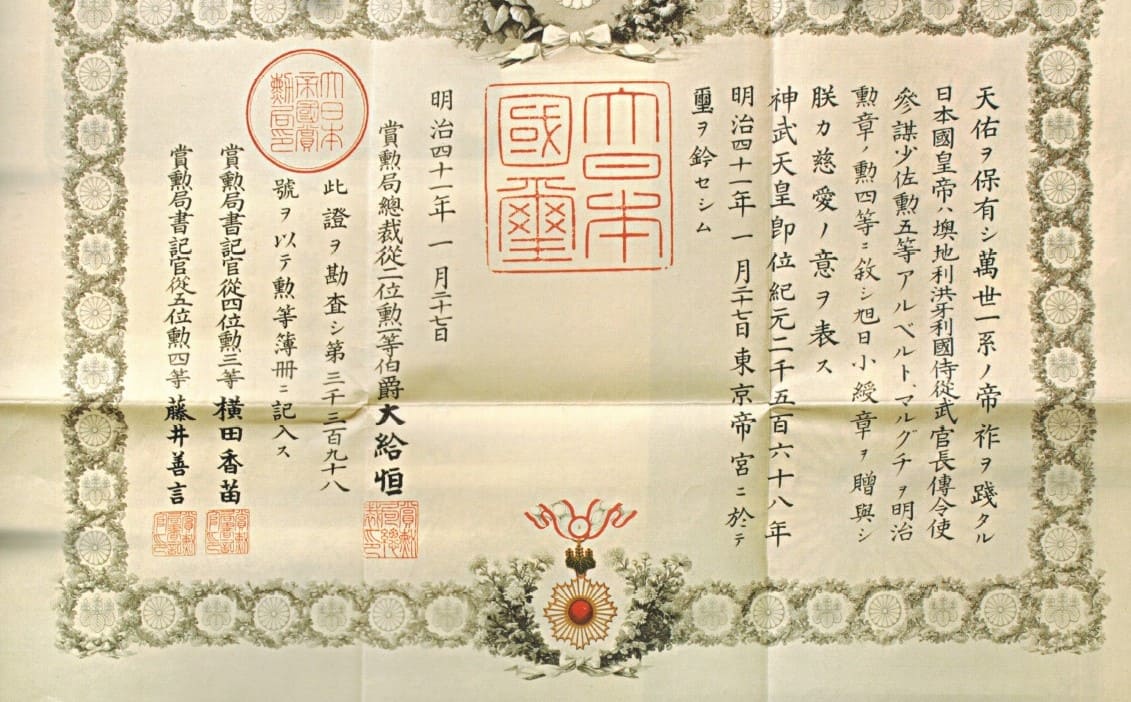 天佑ヲ保有シ萬世一系ノ帝祚ヲ踐タル
日本國皇帝ハ墺地利洪牙利國侍從武官長傳令使
參謀少佐勲五等アルベルト、マルグチヲ明治
勲章ノ勲四等ニ敘シ旭日小綬章ヲ贈與シ
朕カ慈愛ノ意ヲ表ス
神武天皇即位紀元二千五百六十八年
明治四十一年一月二十七日東京帝宮ニ於テ
璽ヲ鈐セシム
大日本
國璽
明治四十一年一月二十七日
賞勲局總裁從二位勲一等伯爵大給恒
賞勲局總裁印
此證ヲ勘査シ第三千三百九十八
號ヲ以テ勲等簿册ニ記入ス
大日本
帝國賞
勲局印
賞勲局書記官從四位勲三等橫田香苗
賞勲局書記官從五位勲四等藤井善言